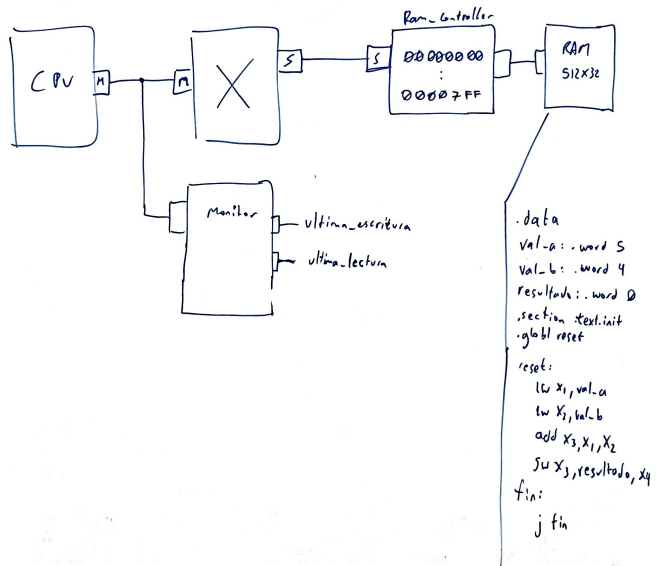 CPU
M
M
X
S
S
Ram_Controller
00000000
:
000007FF
RAM
512x32
Monitor
ultima_escritura
ultima_lectura
.data
val_a: .word 5
val_b: .word 4
resultado: .word 0
.section .text.init
.globl reset
reset:
lw x1, val_a
lw x2, val_b
add x3, x1, x2
sw x3, resultado, x4
fin:
j fin